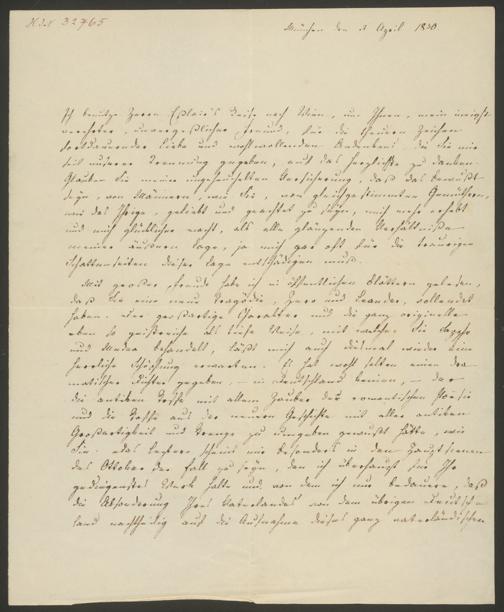 H.I.N. 32765
München den 3 April 1830.
Ich benutze Herrn Eßlair's Reise nach Wien, um Ihnen, mein innigst
verehrter, unvergeßlicher Freund, für die theuern Zeichen
fortdauernder Liebe und wohlwollenden Andenkens die Sie mir
seit unserer Trennung gegeben, auf das herzlichste zu danken.
Glauben Sie meiner ungeheuchelten Versicherung, daß das Bewußt-
seyn, von Männern, wie Sie, von gleichgestimmten Gemüthern,
wie das Ihrige, geliebt und geachtet zu seyn, mich mehr erhebt
und mich glücklicher macht, als alle glänzenden Verhältniße
meiner äußern Lage, ja mich gar oft für die traurigen
Schattenseiten dieser Lage entschädigen muß.
Mit großer Freude habe ich in öffentlichen Blättern gelesen,
daß Sie eine neue Tragödie, Hero und Leander, vollendet
haben. Der großartige Charakter und die ganz originelle
eben so geistreiche als tiefe Weise, mit welcher Sie Sappho
und Medea behandelt, läßt mich auch dießmal wieder eine
herrliche Schöpfung erwarten. Es hat wohl selten einen dra-
matischen Dichter gegeben, – in Deutschland keinen, – der
die antiken Stoffe mit allem Zauber der romantischen Poesie
und die Stoffe aus der neuern Geschichte mit aller antiken
Großartigkeit und Strenge zu umgeben gewußt hätte, wie
Sie. Das Letztere scheint mir besonders in den Hauptscenen
des Ottokar der Fall zu seyn, den ich überhaupt für Ihr
gediegenstes Werk halte und von dem ich nur bedaure, daß
die Absonderung Ihres Vaterlandes von dem übrigen Deutsch-
land nachtheilig auf die Aufnahme dieses ganz vaterländischen